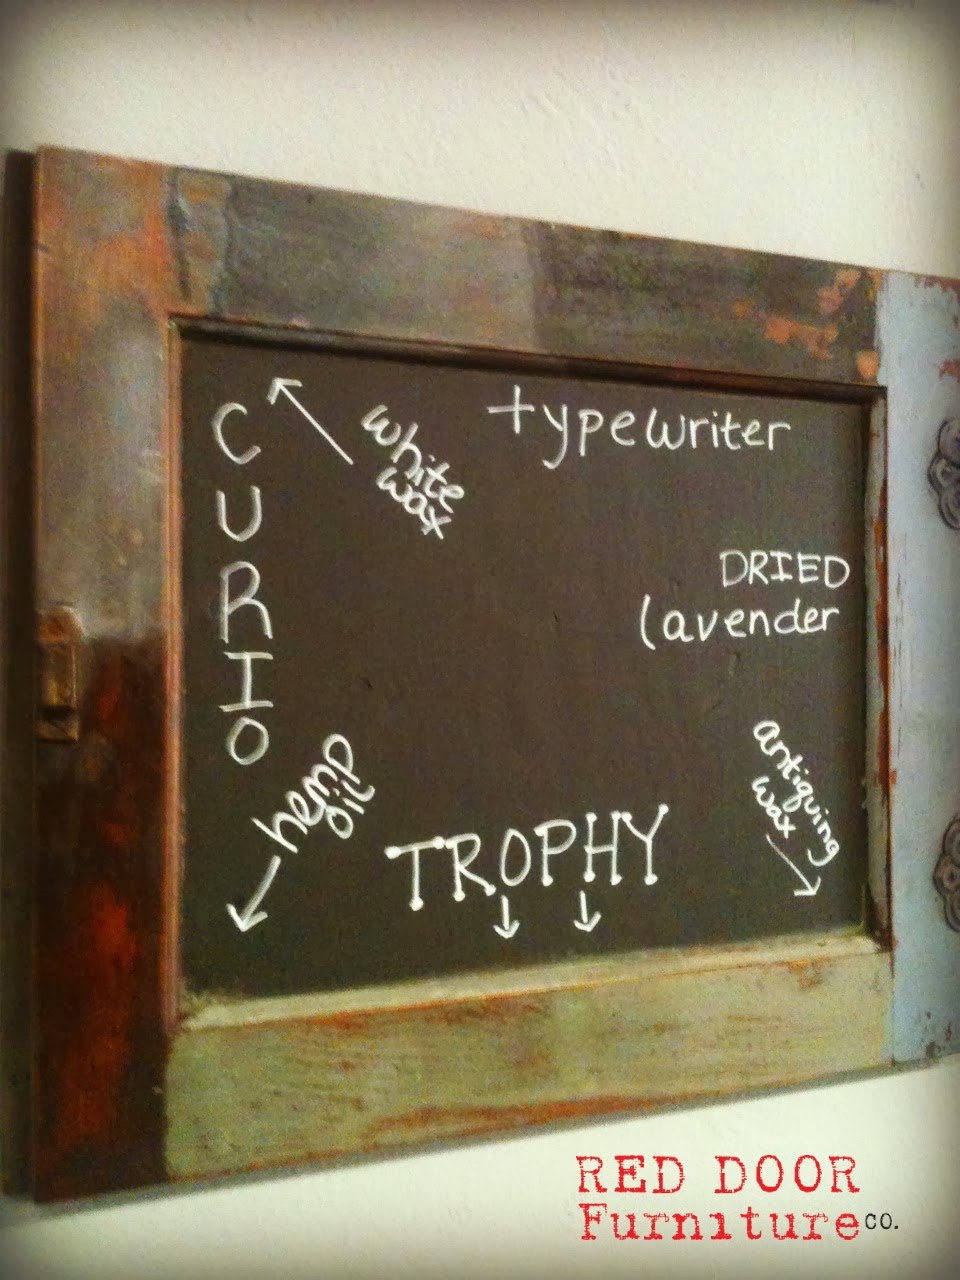 CURIO
white
wax
typewriter
DRIED
lavender
hemp
oil
TROPHY
antiquing
wax
RED DOOR
Furniture co.